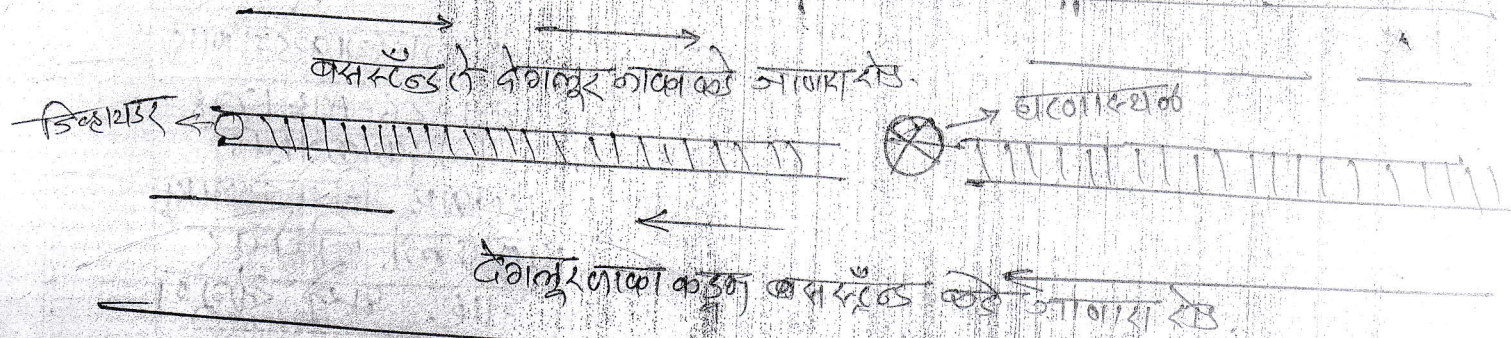 बसस्टँन्ड ते देगलूर नाका कडे जाणारा रोड.
डिव्हायडर
घटणास्थळ
देगलूर नाका कडुन बसस्टँन्ड कडे जाणारा रोड.